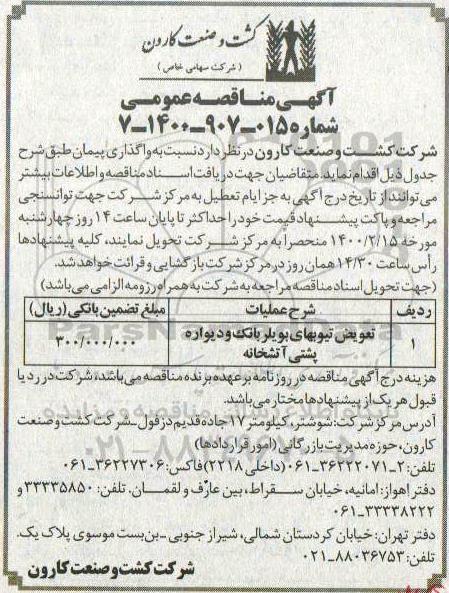 کشت و صنعت کارون
( شرکت سهامی خاص )
آگهی مناقصه عمومی
شماره ۰۱۵-۹۰۷-۱۴۰۰-۷
شرکت کشت و صنعت کارون در نظر دارد نسبت به واگذاری پیمان طبق شرح
جدول ذیل اقدام نماید. متقاضیان جهت دریافت اسناد مناقصه و اطلاعات بیشتر
می‌توانند از تاریخ درج آگهی به جز ایام تعطیل به مرکز شرکت جهت توانسنجی
مراجعه و پاکت پیشنهاد قیمت خود را حداکثر تا پایان ساعت ۱۴ روز چهارشنبه
مورخه ۱۴۰۰/۲/۱۵ منحصراً به مرکز شرکت تحویل نمایند، کلیه پیشنهادها
رأس ساعت ۱۴/۳۰ همان روز در مرکز شرکت بازگشایی و قرائت خواهد شد.
(جهت تحویل اسناد مناقصه مراجعه به شرکت به همراه رزومه الزامی می‌باشد)
ردیف شرح عملیات مبلغ تضمین بانکی (ریال)
۱ تعویض تیوبهای بویلر بانک و دیواره پشتی آتشخانه ۳۰۰/۰۰۰/۰۰۰
هزینه درج آگهی مناقصه در روزنامه بر عهده برنده مناقصه می‌باشد، شرکت در رد یا
قبول هر یک از پیشنهادها مختار می‌باشد.
آدرس مرکز شرکت: شوشتر، کیلومتر ۱۷ جاده قدیم دزفول - شرکت کشت و صنعت
کارون، حوزه مدیریت بازرگانی (امور قراردادها)
تلفن: ۲-۳۶۲۲۲۰۷۱-۰۶۱ (داخلی ۲۲۱۸) فاکس: ۳۶۲۲۷۳۰۶-۰۶۱
دفتر اهواز: امانیه، خیابان سقراط، بین عارف و لقمان. تلفن: ۳۳۳۳۵۸۵۰ و
۳۳۳۳۸۲۲۲-۰۶۱
دفتر تهران: خیابان کردستان شمالی، شیراز جنوبی - بن‌بست موسوی پلاک یک.
تلفن: ۸۸۰۳۶۷۵۳-۰۲۱
شرکت کشت و صنعت کارون